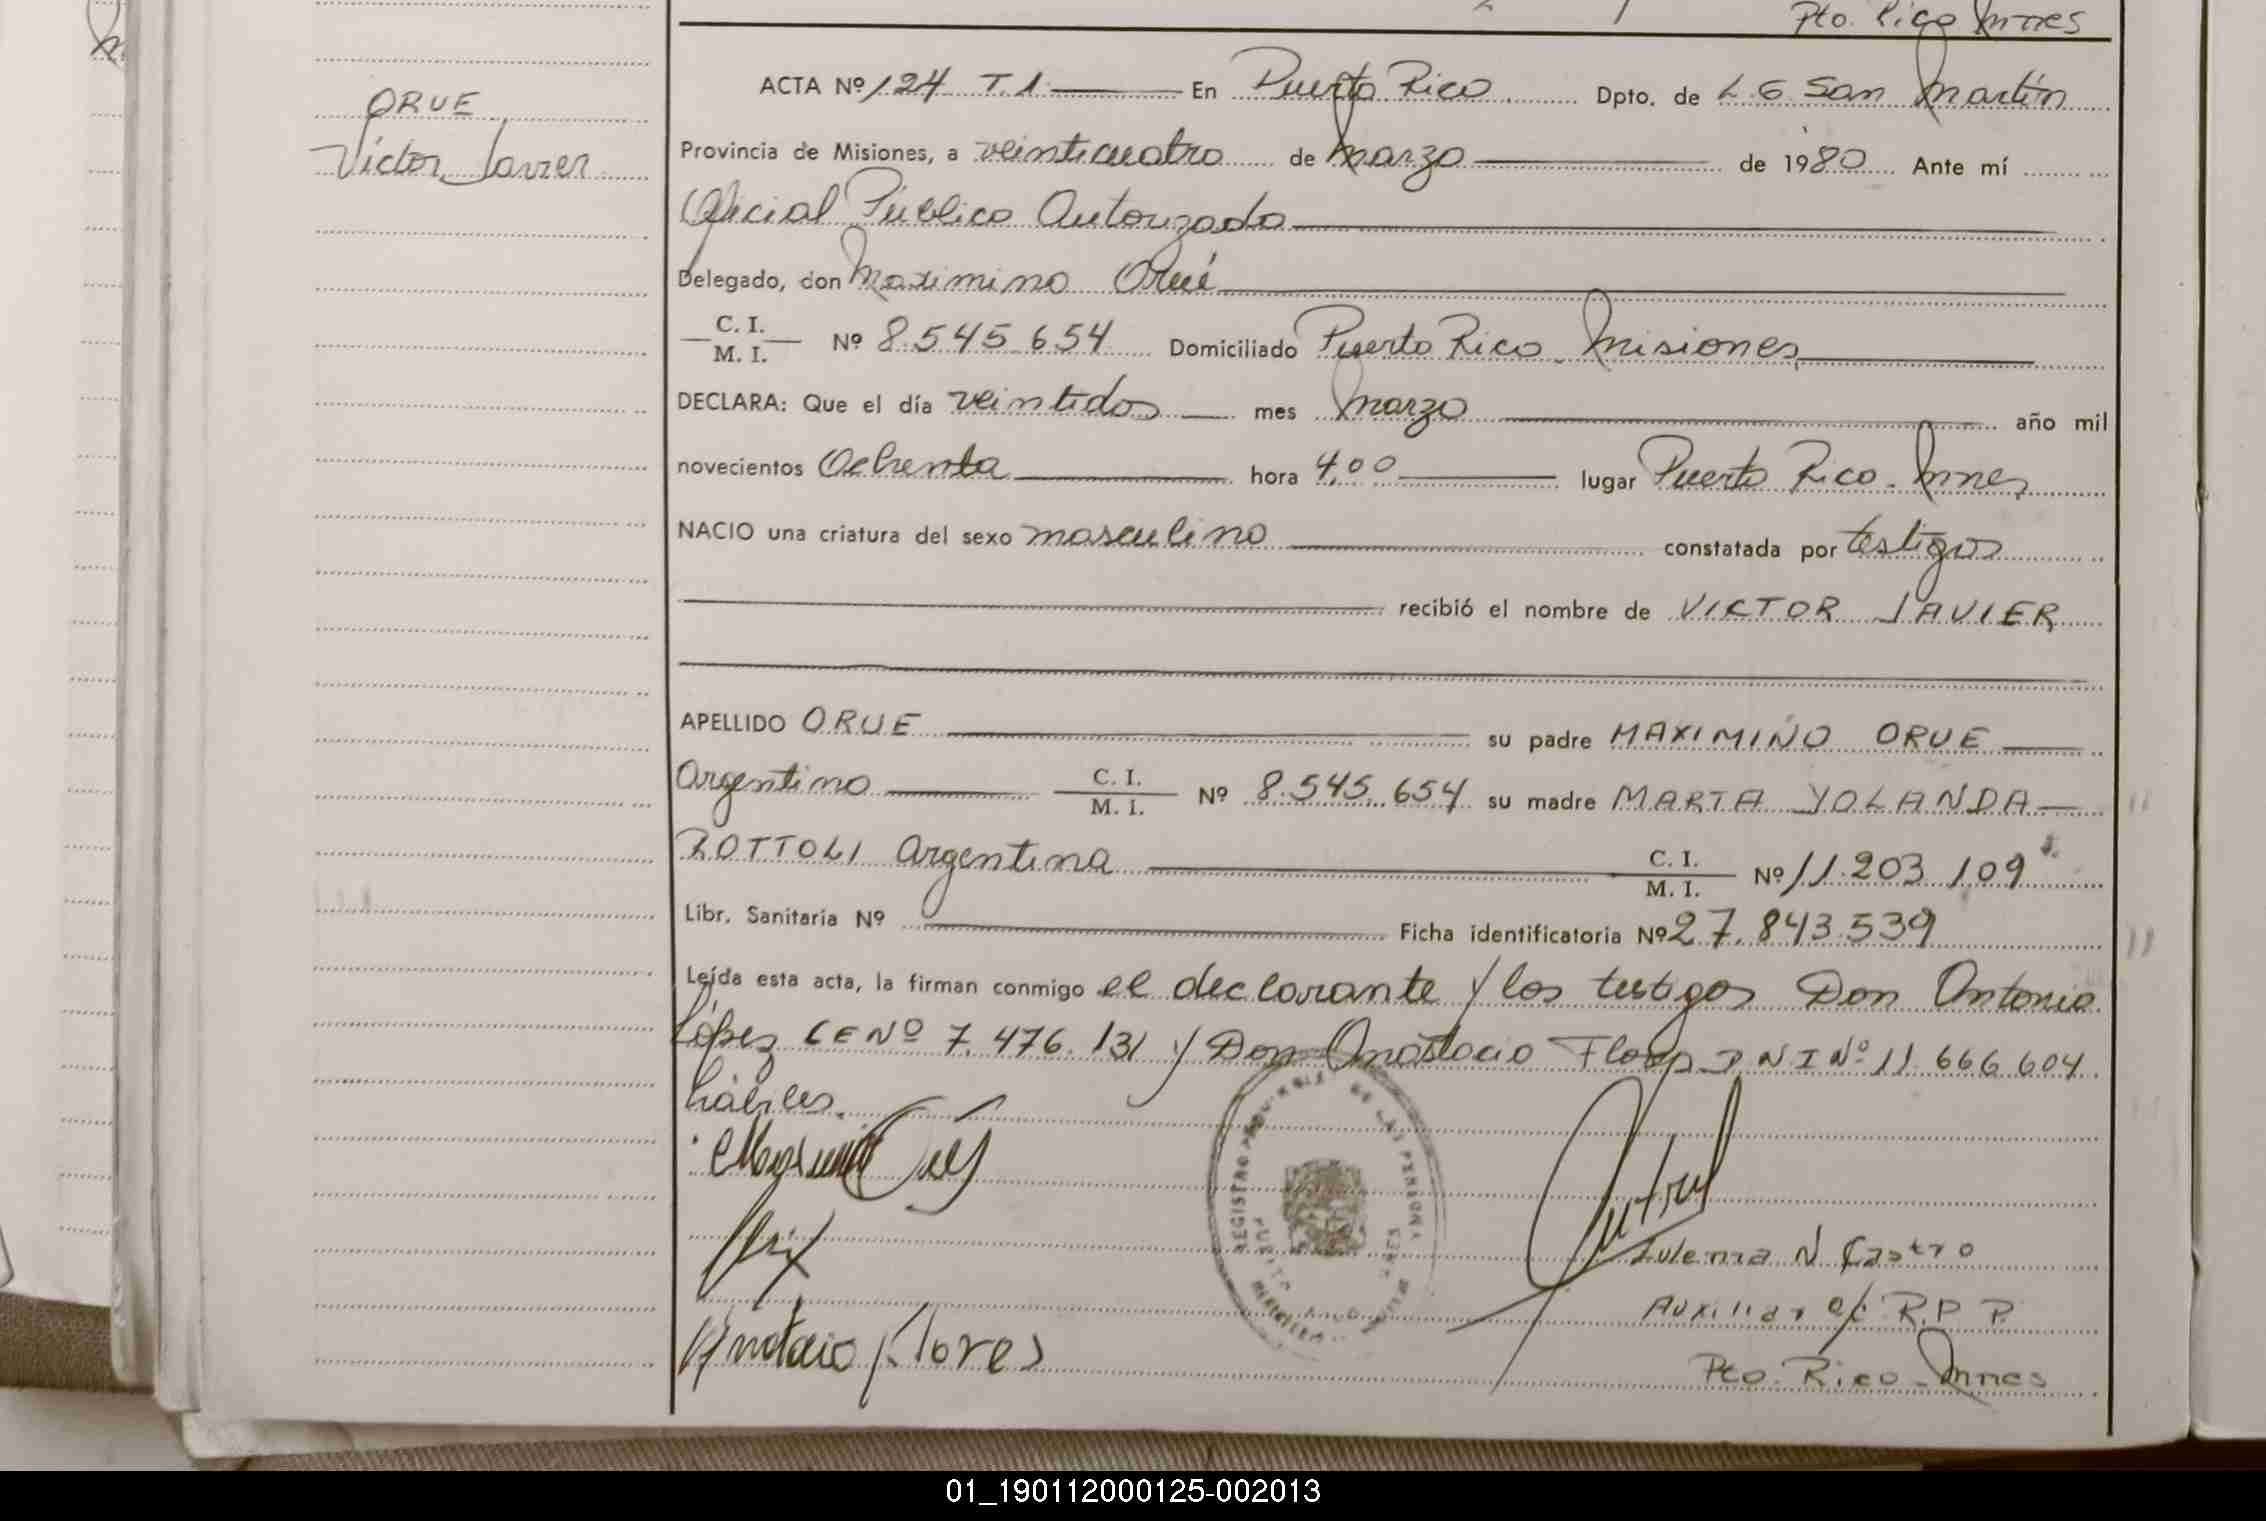 Pto. Rico Mnes
ORUE
Víctor Javier
ACTA Nº 124 T.1 En Puerto Rico Dpto. de L.G. San Martín
Provincia de Misiones, a veinticuatro de Marzo de 1980 Ante mí
Oficial Público Autorizado
Delegado, don Maximino Orué
C. I.
M. I. Nº 8.545.654 Domiciliado Puerto Rico - Misiones
DECLARA: Que el día veintidos mes Marzo año mil
novecientos Ochenta hora 4,00 lugar Puerto Rico - Mnes
NACIO una criatura del sexo masculino constatada por testigos
recibió el nombre de VICTOR JAVIER
APELLIDO ORUE su padre MAXIMINO ORUE
Argentino C. I. M. I. Nº 8.545.654 su madre MARTA YOLANDA
ROTTOLI Argentina C. I. M. I. Nº 11.203.109
Libr. Sanitaria Nº Ficha identificatoria Nº 27.843.539
Leída esta acta, la firman conmigo el declarante y los testigos Don Antonio
López CE Nº 7.476.131 y Don Anastacio Flores DNI Nº 11.666.604
hábiles.
REGISTRO PROVINCIAL DE LAS PERSONAS
PUERTO RICO
Zulema N Castro
Auxiliar a/c R.P.P.
Anatacio Flores
Pto. Rico - Mnes
01_190112000125-002013